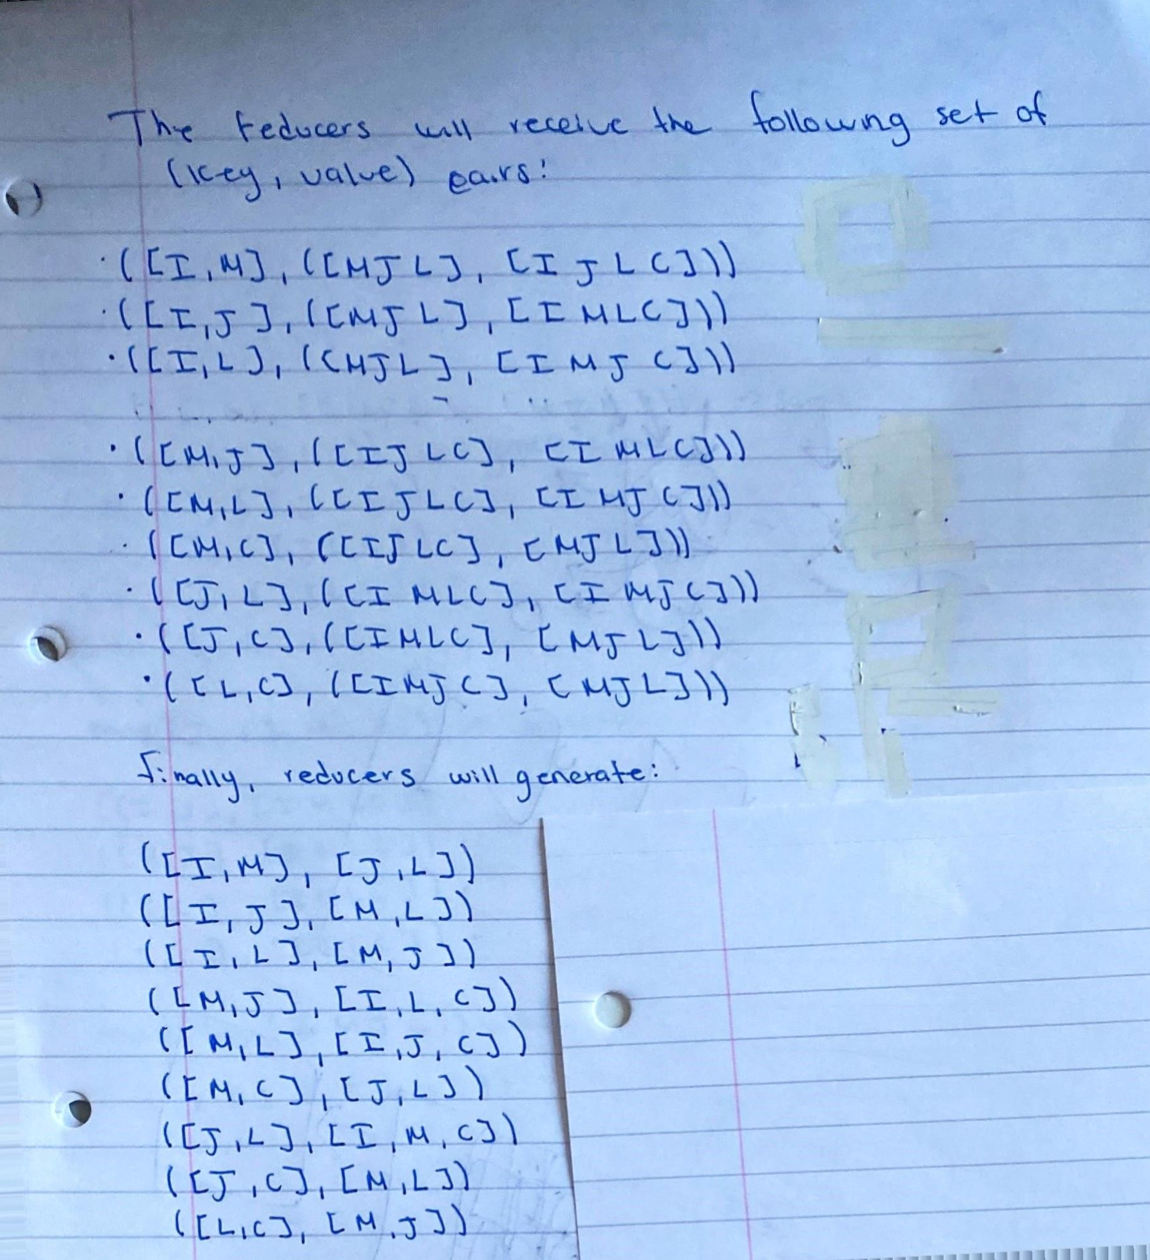 The reducers will receive the following set of
(key, value) pairs:
· ([I,M], ([MJL], [IJLC]))
· ([I,J], ([MJL], [IMLC]))
· ([I,L], ([MJL], [IMJC]))
· ([M,J], ([IJLC], [IMLC]))
· ([M,L], ([IJLC], [IMJC]))
· ([M,C], ([IJLC], [MJL]))
· ([J,L], ([IMLC], [IMJC]))
· ([J,C], ([IMLC], [MJL]))
· ([L,C], ([IMJC], [MJL]))
Finally, reducers will generate:
([I,M], [J,L])
([I,J], [M,L])
([I,L], [M,J])
([M,J], [I,L,C])
([M,L], [I,J,C])
([M,C], [J,L])
([J,L], [I,M,C])
([J,C], [M,L])
([L,C], [M,J])